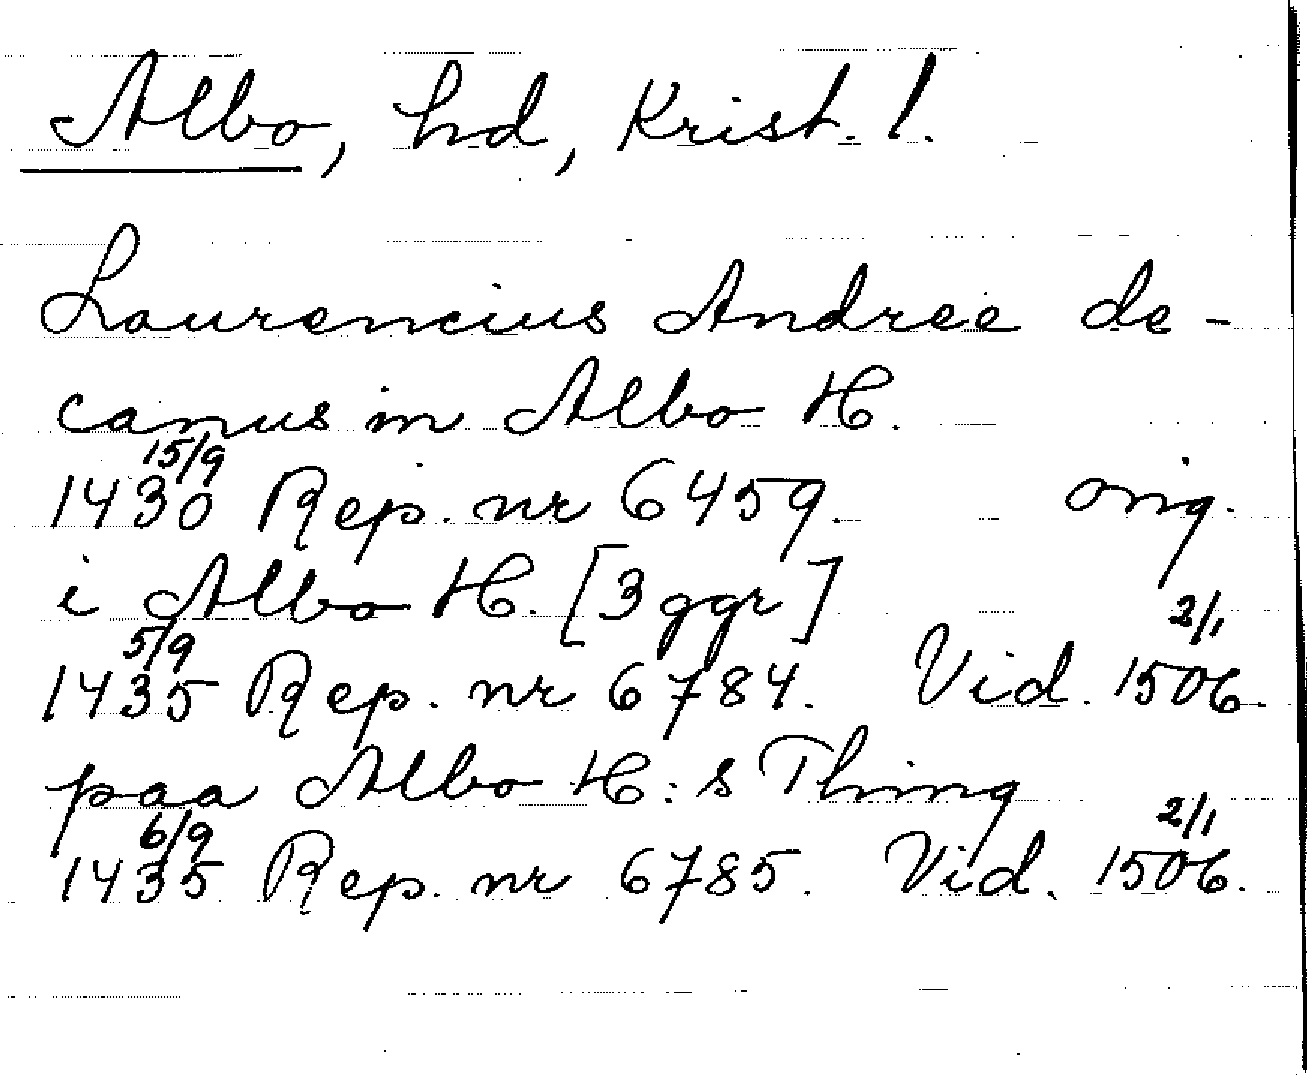 Albo, hd, Krist. l.
Laurencius Andree de-
canus in Albo H.
1430 15/9 Rep. nr 6459. orig.
i Albo H. [3 ggr]
1435 5/9 Rep. nr 6784. Vid. 1506 2/1.
paa Albo H:s Thing
1435 6/9 Rep. nr 6785. Vid. 1506 2/1.